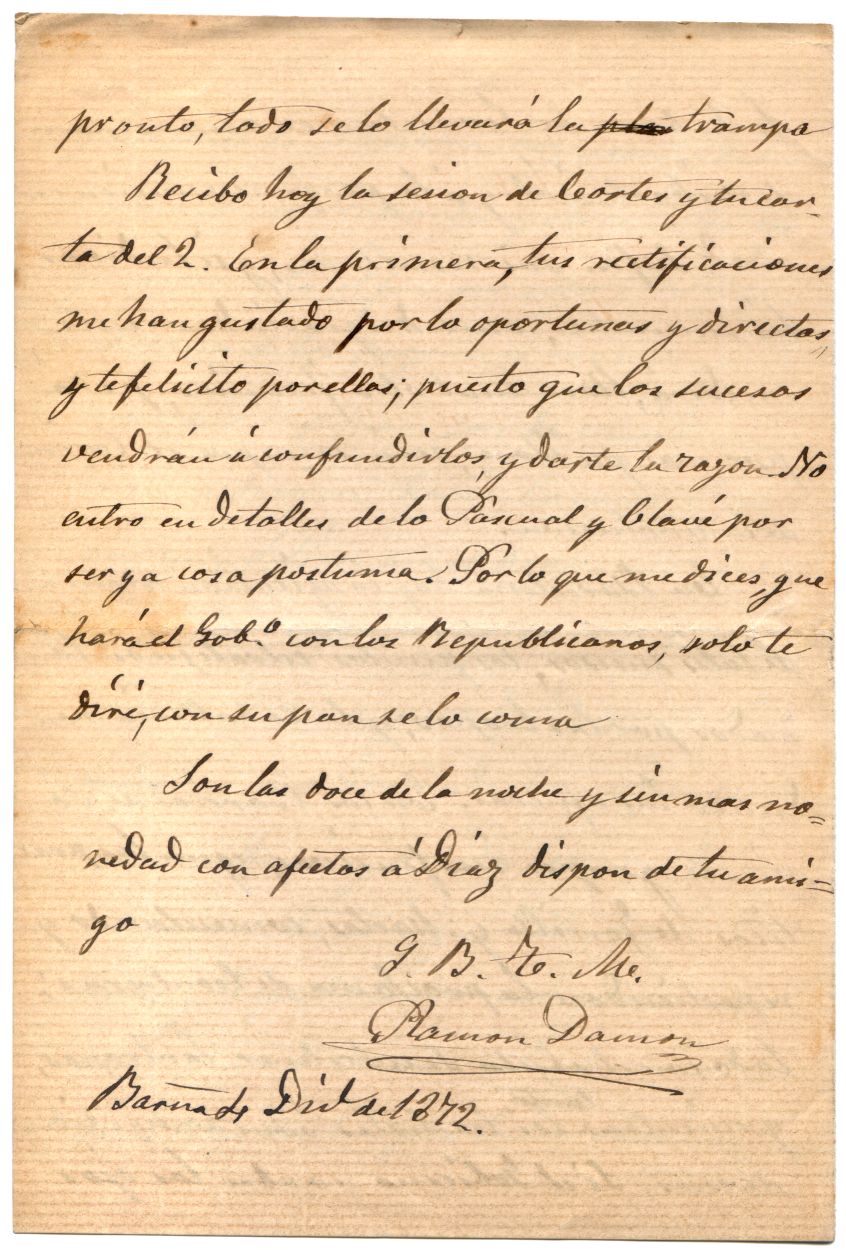 pronto, todo se lo llevará la pla trampa
Recibo hoy la sesion de Cortes y tu car-
ta del 2. En la primera, tus rectificaciones
me han gustado por lo oportunas y directas,
y te felicito por ellas; puesto que los sucesos
vendrán á confundirlos, y darte la razon. No
entro en detalles de lo Pascual y Clavé por
ser ya cosa postuma. Por lo que me dices, que
hará el Gob.º con los Republicanos, solo te
diré, con su pan se lo coma
Son las doce de la noche y sin mas no=
vedad con afectos á Diaz dispon de tu ami=
go
Q. B. T. M.
Ramon Damon
Barna 4 de 1872.